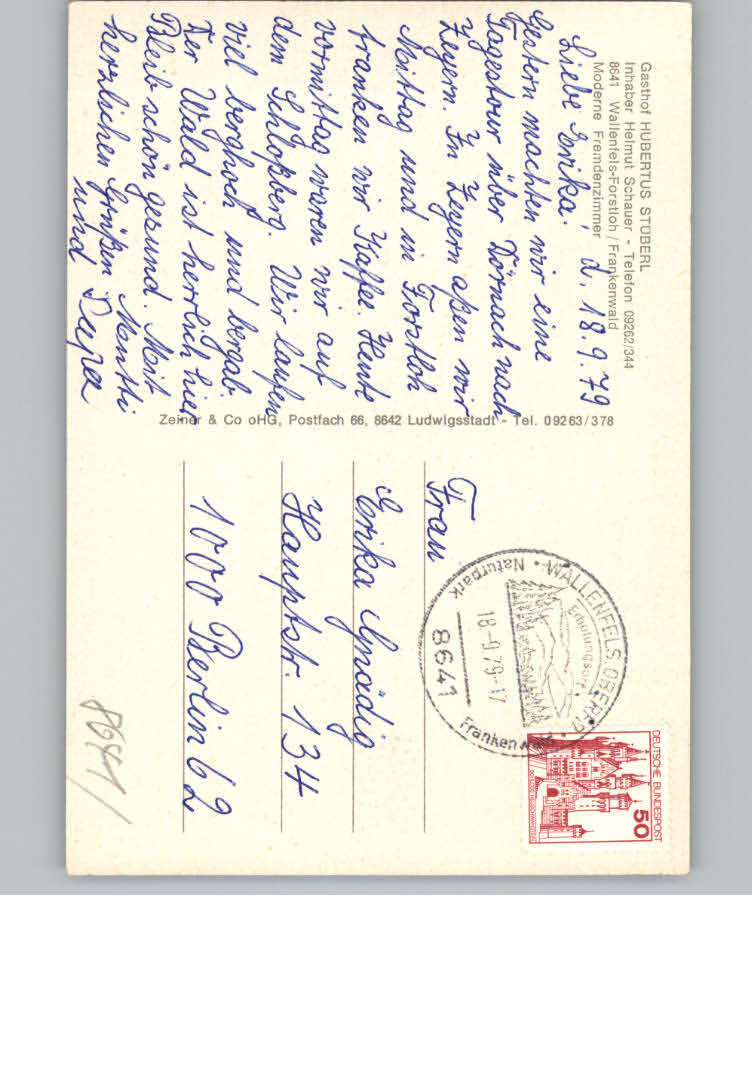 Gasthof HUBERTUS STÜBERL
Inhaber Helmut Schauer - Telefon 09262/344
8641 Wallenfels-Forstloh / Frankenwald
Moderne Fremdenzimmer
d. 18.9.79
Liebe Erika!
Gestern machten wir eine
Tagestour über Dörnach nach
Zeyern. In Zeyern aßen wir
Mittag und in Forstloh
tranken wir Kaffee. Heute
vormittag waren wir auf
dem Schloßberg. Wir laufen
viel berghoch und bergab.
Der Wald ist herrlich hier
Bleib schön gesund. Mit
herzlichen Grüßen Mutti
und Papa
Zeiner & Co oHG, Postfach 66, 8642 Ludwigsstadt - Tel. 09263/378
DEUTSCHE BUNDESPOST
50
WALLENFELS, OBERFR
Erholungsort
18-9.79-17
8641
Naturpark
Frankenwald
Frau
Erika Gnädig
Hauptstr. 134
1000 Berlin 62
8641/